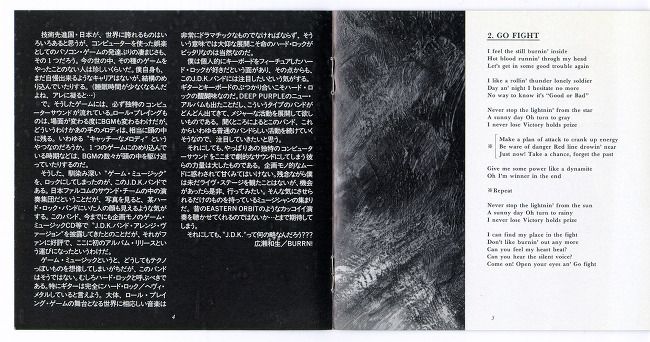 技術先進国・日本が、世界に誇れるものはい
ろいろあると思うが、コンピューターを使った娯楽
としてのパソコン・ゲームの発達ぶりの凄まじさも、
その1つだろう。今の世の中、その種のゲームを
やったことのない人は珍しいくらいだ。僕自身も、
まだ自慢出来るようなキャリアはないが、結構のめ
り込んでいたりする。(睡眠時間が少なくなるんだ
よね、アレに凝ると…)
で、そうしたゲームには、必ず独特のコンピュ
ーターサウンドが流れている。ロール・プレイングも
のは、場面が変わる度にBGMも変わるわけだが、
どういうわけかあの手のメロディは、相当に頭の中
に残る。いわゆる“キャッチーなメロディ”という
やつなのだろうか。1つのゲームにのめり込んで
いる時期などは、BGMの数々が頭の中を駆け巡
っていたりするのだ。
そうした、馴染み深い“ゲーム・ミュージック”
を、ロックにしてしまったのが、このJ.D.K.バンドで
ある。日本ファルコムのサウンド・チームの中の演
奏集団だということだが、写真を見ると、某ハー
ド・ロック・バンドにいた人の顔も見えるような気が
する。このバンド、今までにも企画モノのゲーム・
ミュージックCD等で“J.D.K.バンド・アレンジ・ヴ
ァージョン”を披露してきたとのことだが、それがフ
ァンに好評で、ここに初のアルバム・リリースとい
う運びになったというわけだ。
ゲーム・ミュージックというと、どうしてもテクノ
っぽいものを想像してしまいがちだが、このバンド
はそうではない。むしろハード・ロックと呼ぶべきで
ある。特にギターは完全にハード・ロック/ヘヴィ・
メタルしていると言えよう。大体、ロール・プレイ
ング・ゲームの舞台となる世界に相応しい音楽は
非常にドラマティックなものでなければならず、そう
いう意味では大仰な展開こそ命のハード・ロックが
ピッタリなのは当然なのだ。
僕は個人的にキーボードをフィーチュアしたハー
ド・ロックが好きだという面があり、その点からも、
このJ.D.K.バンドには注目したいという気がする。
ギターとキーボードのぶつかり合いこそハード・ロ
ックの醍醐味なのだ。DEEP PURPLEのニュー・
アルバムも出たことだし、こういうタイプのバンドが
どんどん出てきて、メジャーな活動を展開して欲し
いものである。聞くところによるとこのバンド、これ
からいわゆる普通のバンドらしい活動を続けていく
そうなので、注目していきたいと思う。
それにしても、やっぱりあの独特のコンピュータ
ーサウンドをここまで劇的なサウンドにしてしまう彼
らの力量は大したものである。企画モノ的なムー
ドに惑わされて甘くみてはいけない。残念ながら僕
は未だライヴ・ステージを観たことはないが、機会
があったら是非、行ってみたい。そんな気にさせら
れるだけのものを持っているミュージシャンの集まり
だ。昔のEASTERN ORBITのようなカッコイイ演
奏を聴かせてくれるのではないか…とまで期待して
しまう。
それにしても、“J.D.K.”って何の略なんだろ???
広瀬和生/BURRN!
4
2. GO FIGHT
I feel the still burnin' inside
Hot blood runnin' throgh my head
Let's get in some good trouble again
I like a rollin' thunder lonely soldier
Day an' night I hesitate no more
No way to know it's "Good or Bad"
Never stop the lightnin' from the star
A sunny day Oh turn to gray
I never lose Victory holds prize
Make a plan of attack to crank up energy
※ Be ware of danger Red line drewin' near
Just now! Take a chance, forget the past
Give me some power like a dynamite
Oh I'm winner in the end
※Repeat
Never stop the lightnin' from the sun
A sunny day Oh turn to rainy
I never lose Victory holds prize
I can find my place in the fight
Don't like burnin' out any more
Can you feel my heart beat?
Can you hear the silent voice?
Come on! Open your eyes an' Go fight
5